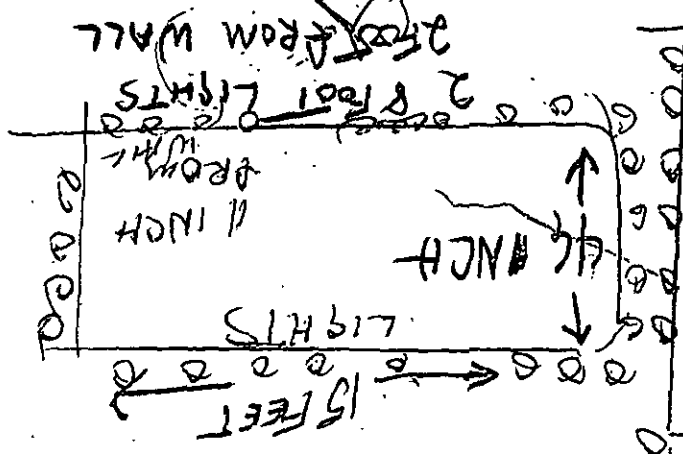 15 FEET
LIGHTS
46 INCH
11 INCH
FROM WALL
2 8 FOOT LIGHTS
FROM WALL